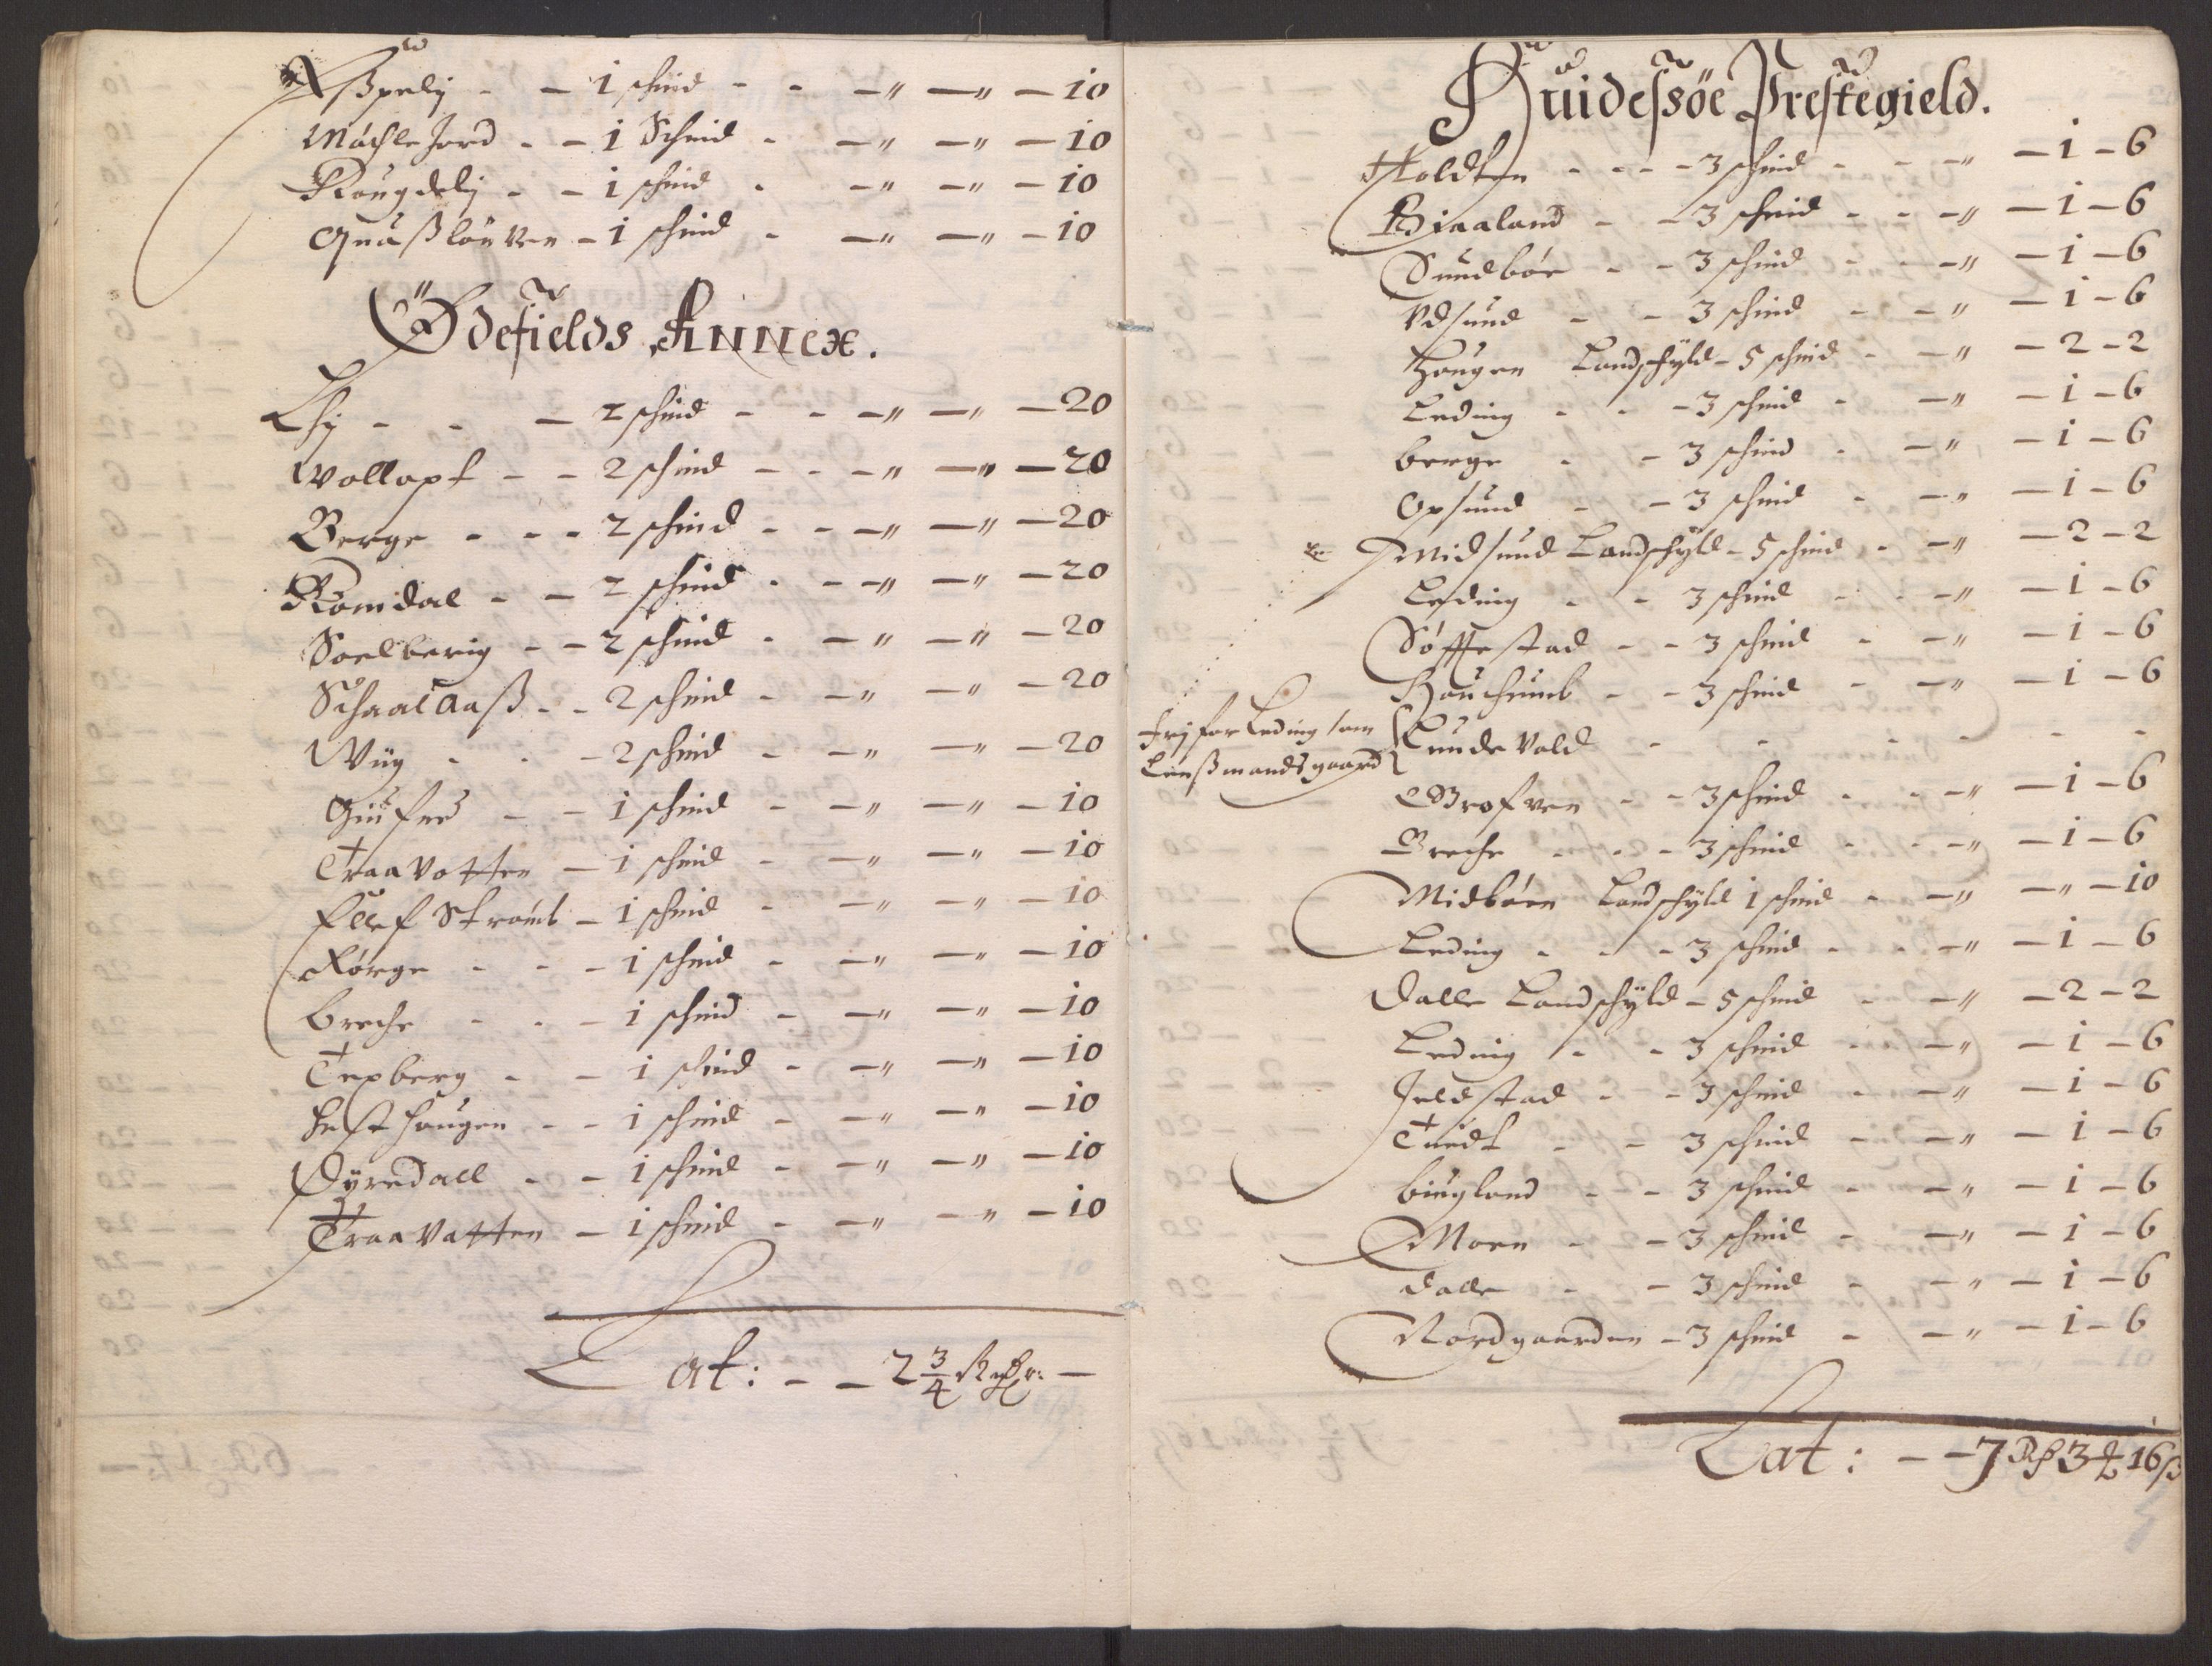 Aßpelij - - 1 schind - - - " - " - 10
Machle Jord - - 1 Schind - - " - " - 10
Rougdelij - - 1 schind - - " - " - 10
Quaßlöuven - 1 schind - - " - " - 10
Ødefields Annex.
Lij - - - 2 schind - - - " - " - 20
Wollopt - - 2 schind - - - " - " - 20
Berge - - - 2 schind - - - " - " - 20
Romdal - - 2 schind - - - " - " - 20
Soelberig - - 2 schind - - " - " - 20
Schaalaaß - - 2 schind - - " - " - 20
Wiig - - - 2 schind - - " - " - 20
- - 1 schind - - " - " - 10
Traavotten - 1 schind - - " - " - 10
Ellef Stromb - 1 schind - - " - " - 10
Rørge - - - 1 schind - - " - " - 10
Breche - - - 1 schind - - " - " - 10
Texberg - - 1 schind - - " - " - 10
Hest hougen - - 1 schind - - " - " - 10
Dyredall - - 1 schind - - " - " - 10
Traavatten - 1 schind - - " - " - 10
Lat: - - 2 3/4 Rdr: -
Huidessöe Prestegield.
Holdten - - - - 3 schind - - - " - 1 - 6
Biaaland - - 3 schind - - - " - 1 - 6
Sundbøe - - 3 schind - - - " - 1 - 6
Vdsund - - 3 schind - - " - 1 - 6
Hougen Landschyld - 5 schind - - " - 2 - 2
Leding - - - 3 schind - - " - 1 - 6
Berge - - 3 schind - - " - 1 - 6
Opsund - - 3 schind - - " - 1 - 6
Midsund Landschyld - 5 schind - - " - 2 - 2
Leding - - 3 schind - - " - 1 - 6
Søftestad - - 3 schind - - " - 1 - 6
Houchumb - - 3 schind - - " - 1 - 6
frij for Leding som
Lenßmands gaard
Lundevald - - - - - -
Grofven - - 3 schind - - - " - 1 - 6
Breche - - - 3 schind - - - " - 1 - 6
Midbøen Landschyld 1 schind - - " - " - 10
Leding - - - 3 schind - - - " - 1 - 6
Dalle Landschyld - 5 schind - - " - 2 - 2
Leding - - 3 schind - - " - 1 - 6
Jeldstad - - 3 schind - - " - 1 - 6
Tuedt - - 3 schind - - " - 1 - 6
Biugland - - 3 schind - - " - 1 - 6
Moen - - 3 schind - - " - 1 - 6
Dalle - - 3 schind - - " - 1 - 6
Nordgaarden - 3 schind - - " - 1 - 6
Lat: - - 7 Rd 3 ₰ 16 ß